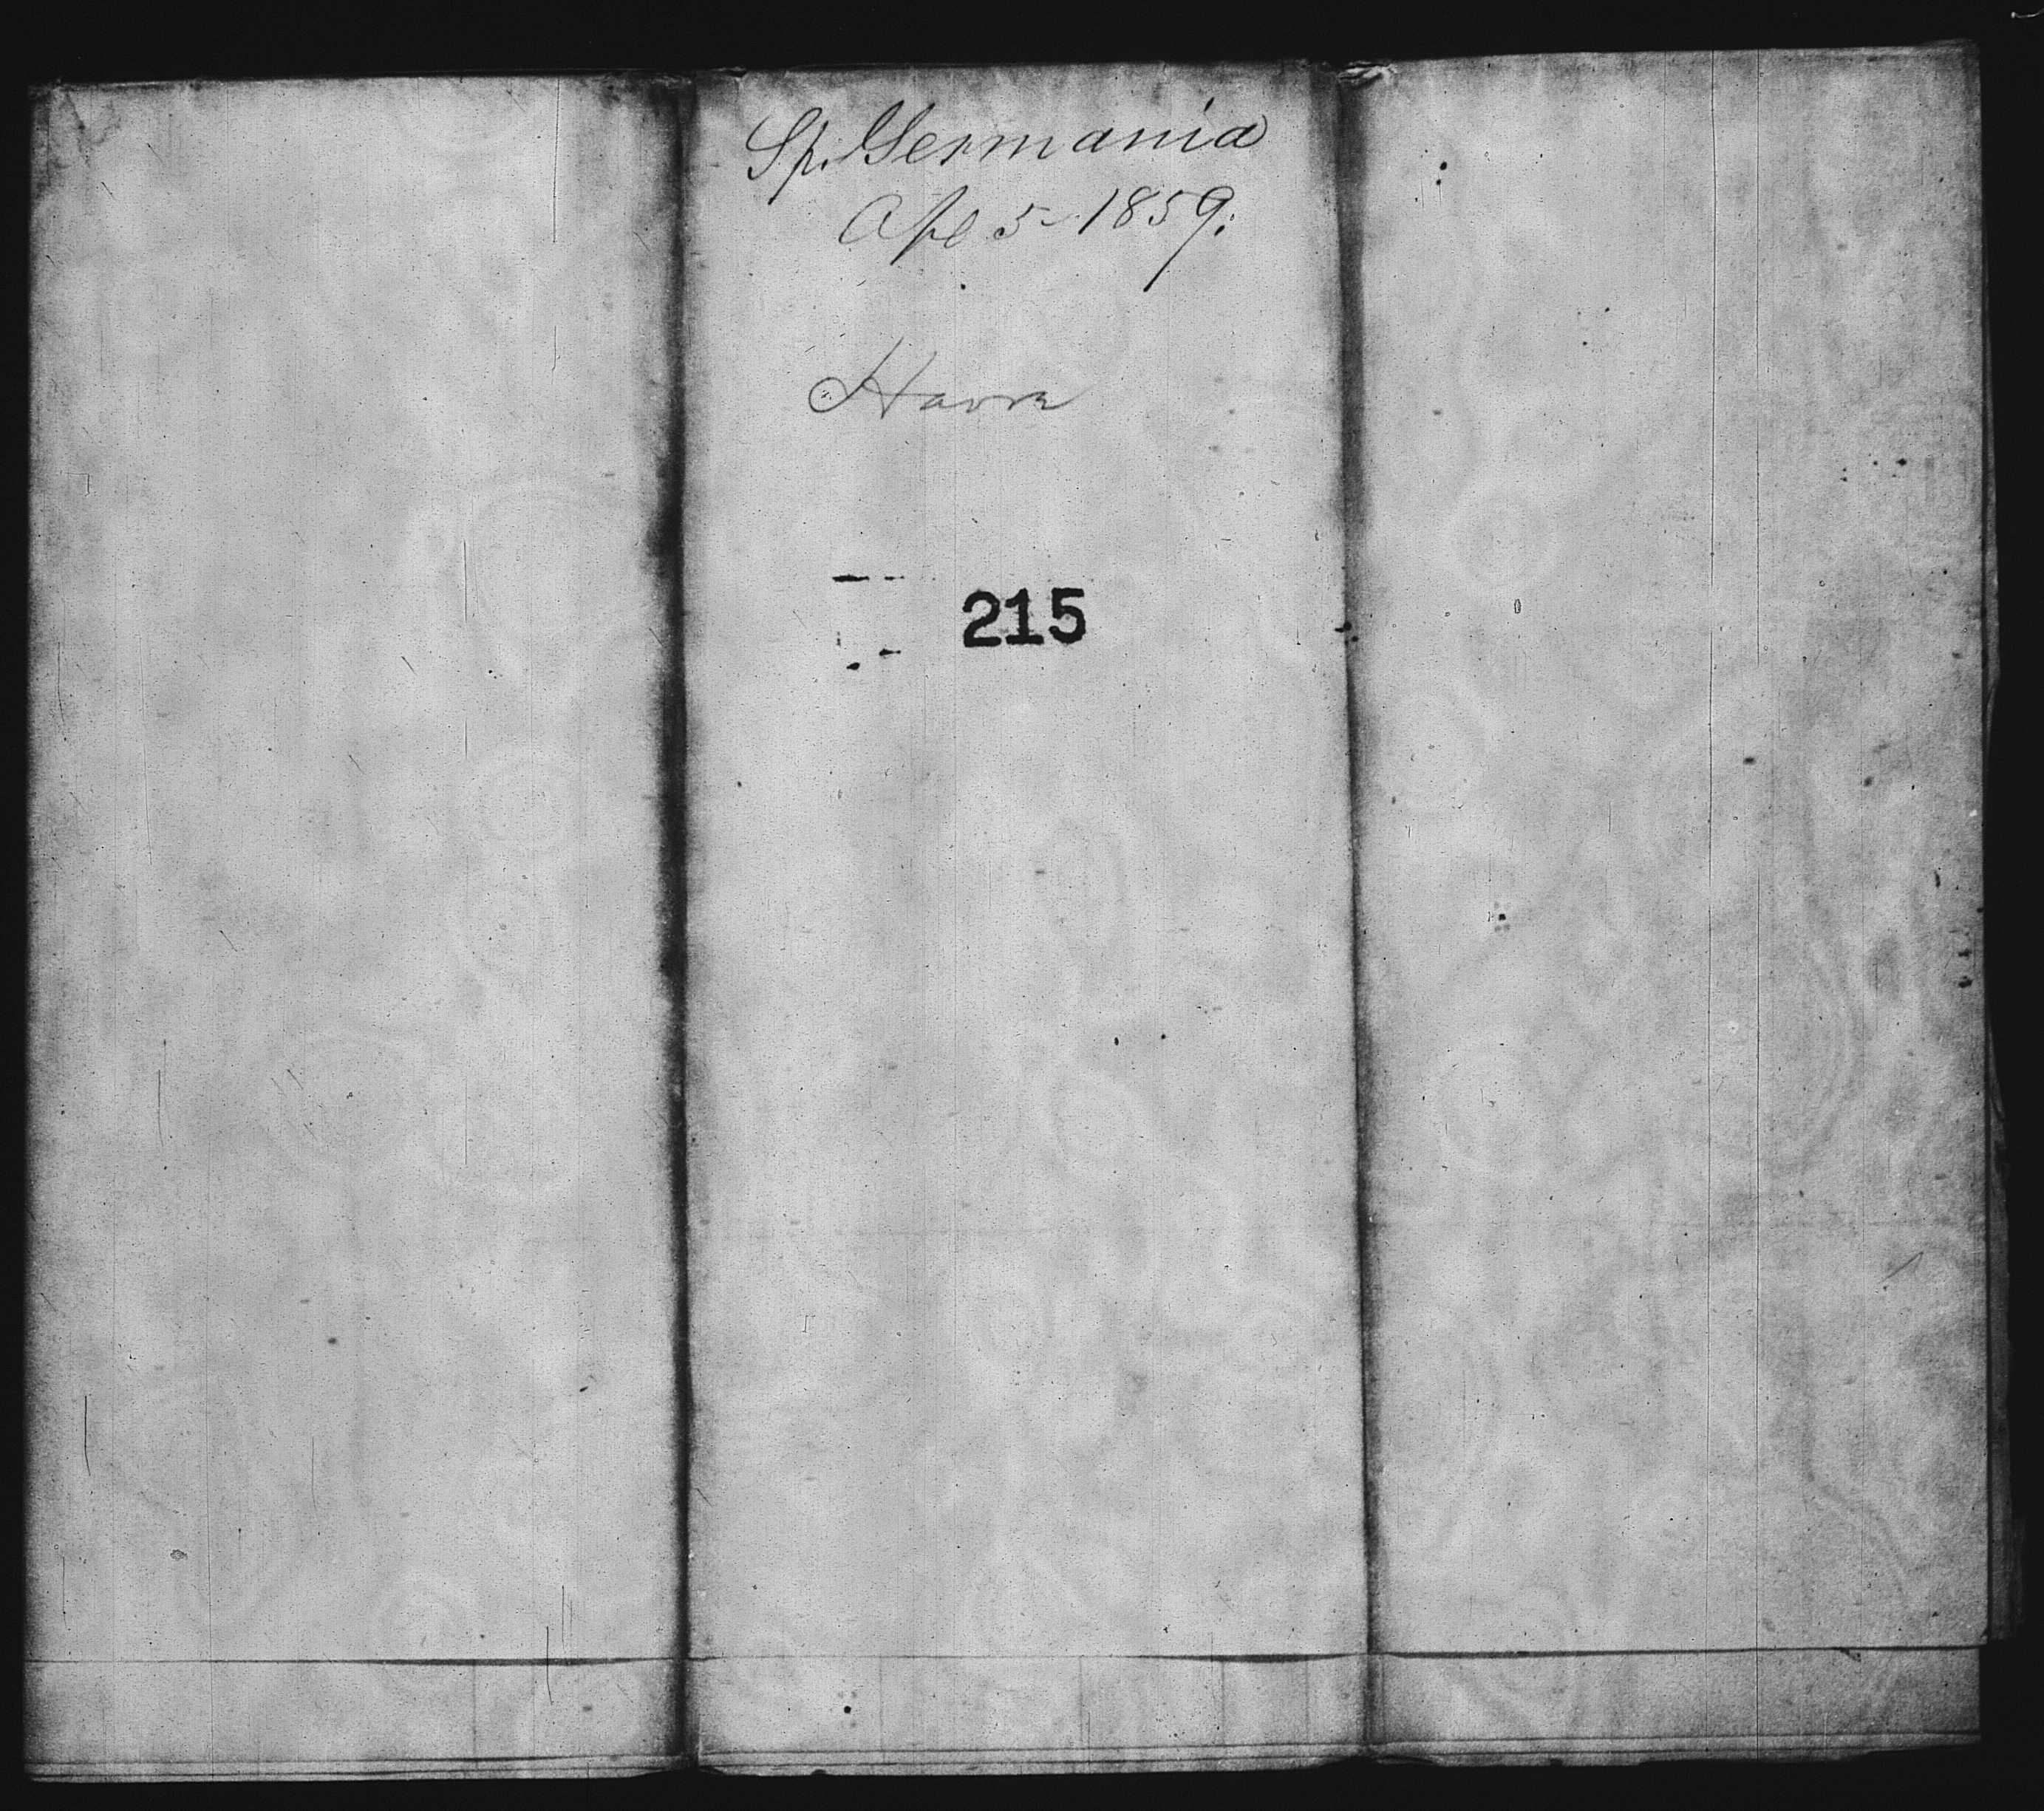 Sp. Germania
Apl 5 - 1859.
Havre
215